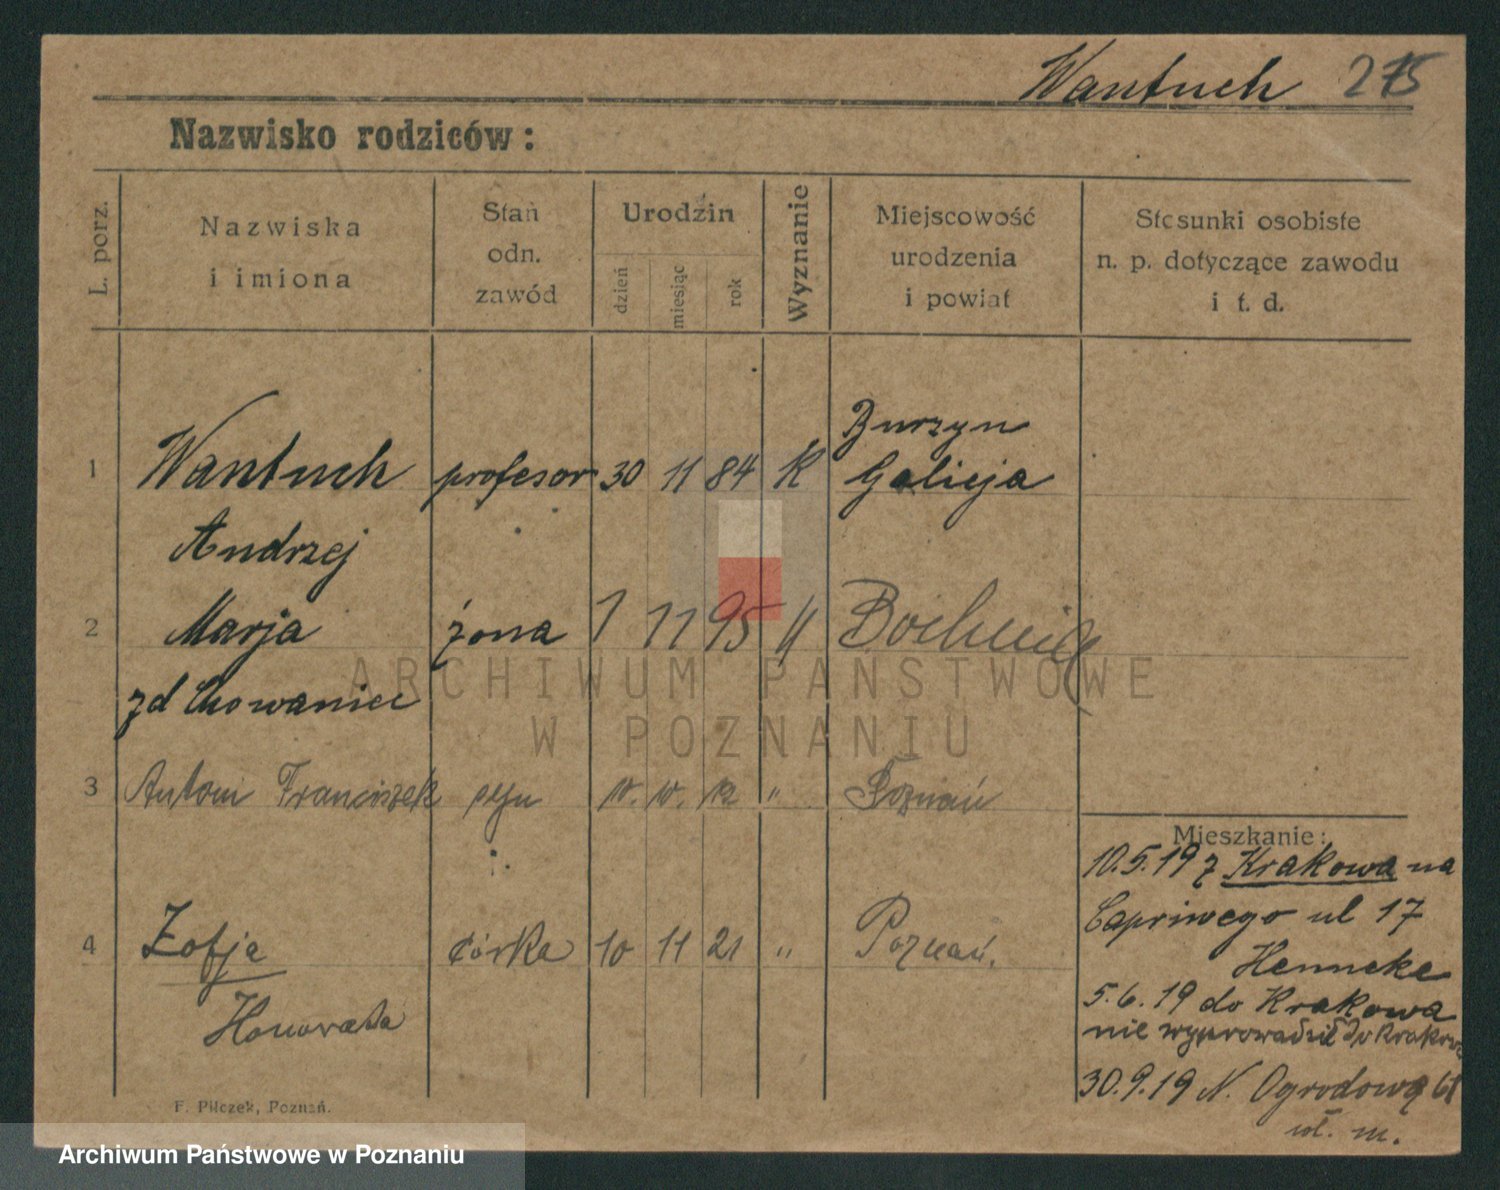 Wantuch 275
Nazwisko rodziców:
L. porz.
Nazwiska
i imiona
Stan
odn.
zawód
Urodzin
dzień
miesiąc
rok
Wyznanie
Miejscowość
urodzenia
i powiat
Stosunki osobiste
n. p. dotyczące zawodu
i t. d.
Burzyn
1 Wantuch profesor 30 11 84 K Galicja
Andrzej
2 Marja żona 1 11 95 " Bochnia
zd Chowaniec
3 Antoni Franciszek syn " Poznań
4 Zofja córka 10 11 21 " Poznań.
Honorata
Mieszkanie:
10.5.19 z Krakowa na
Capriwego ul 17
Henneke
5.6.19 do Krakowa
nie wyprowadził do Krakowa
30.9.19 N. Ogrodowa 61
wł. m.
F. Pilczek, Poznań.
ARCHIWUM PAŃSTWOWE
W POZNANIU
Archiwum Państwowe w Poznaniu